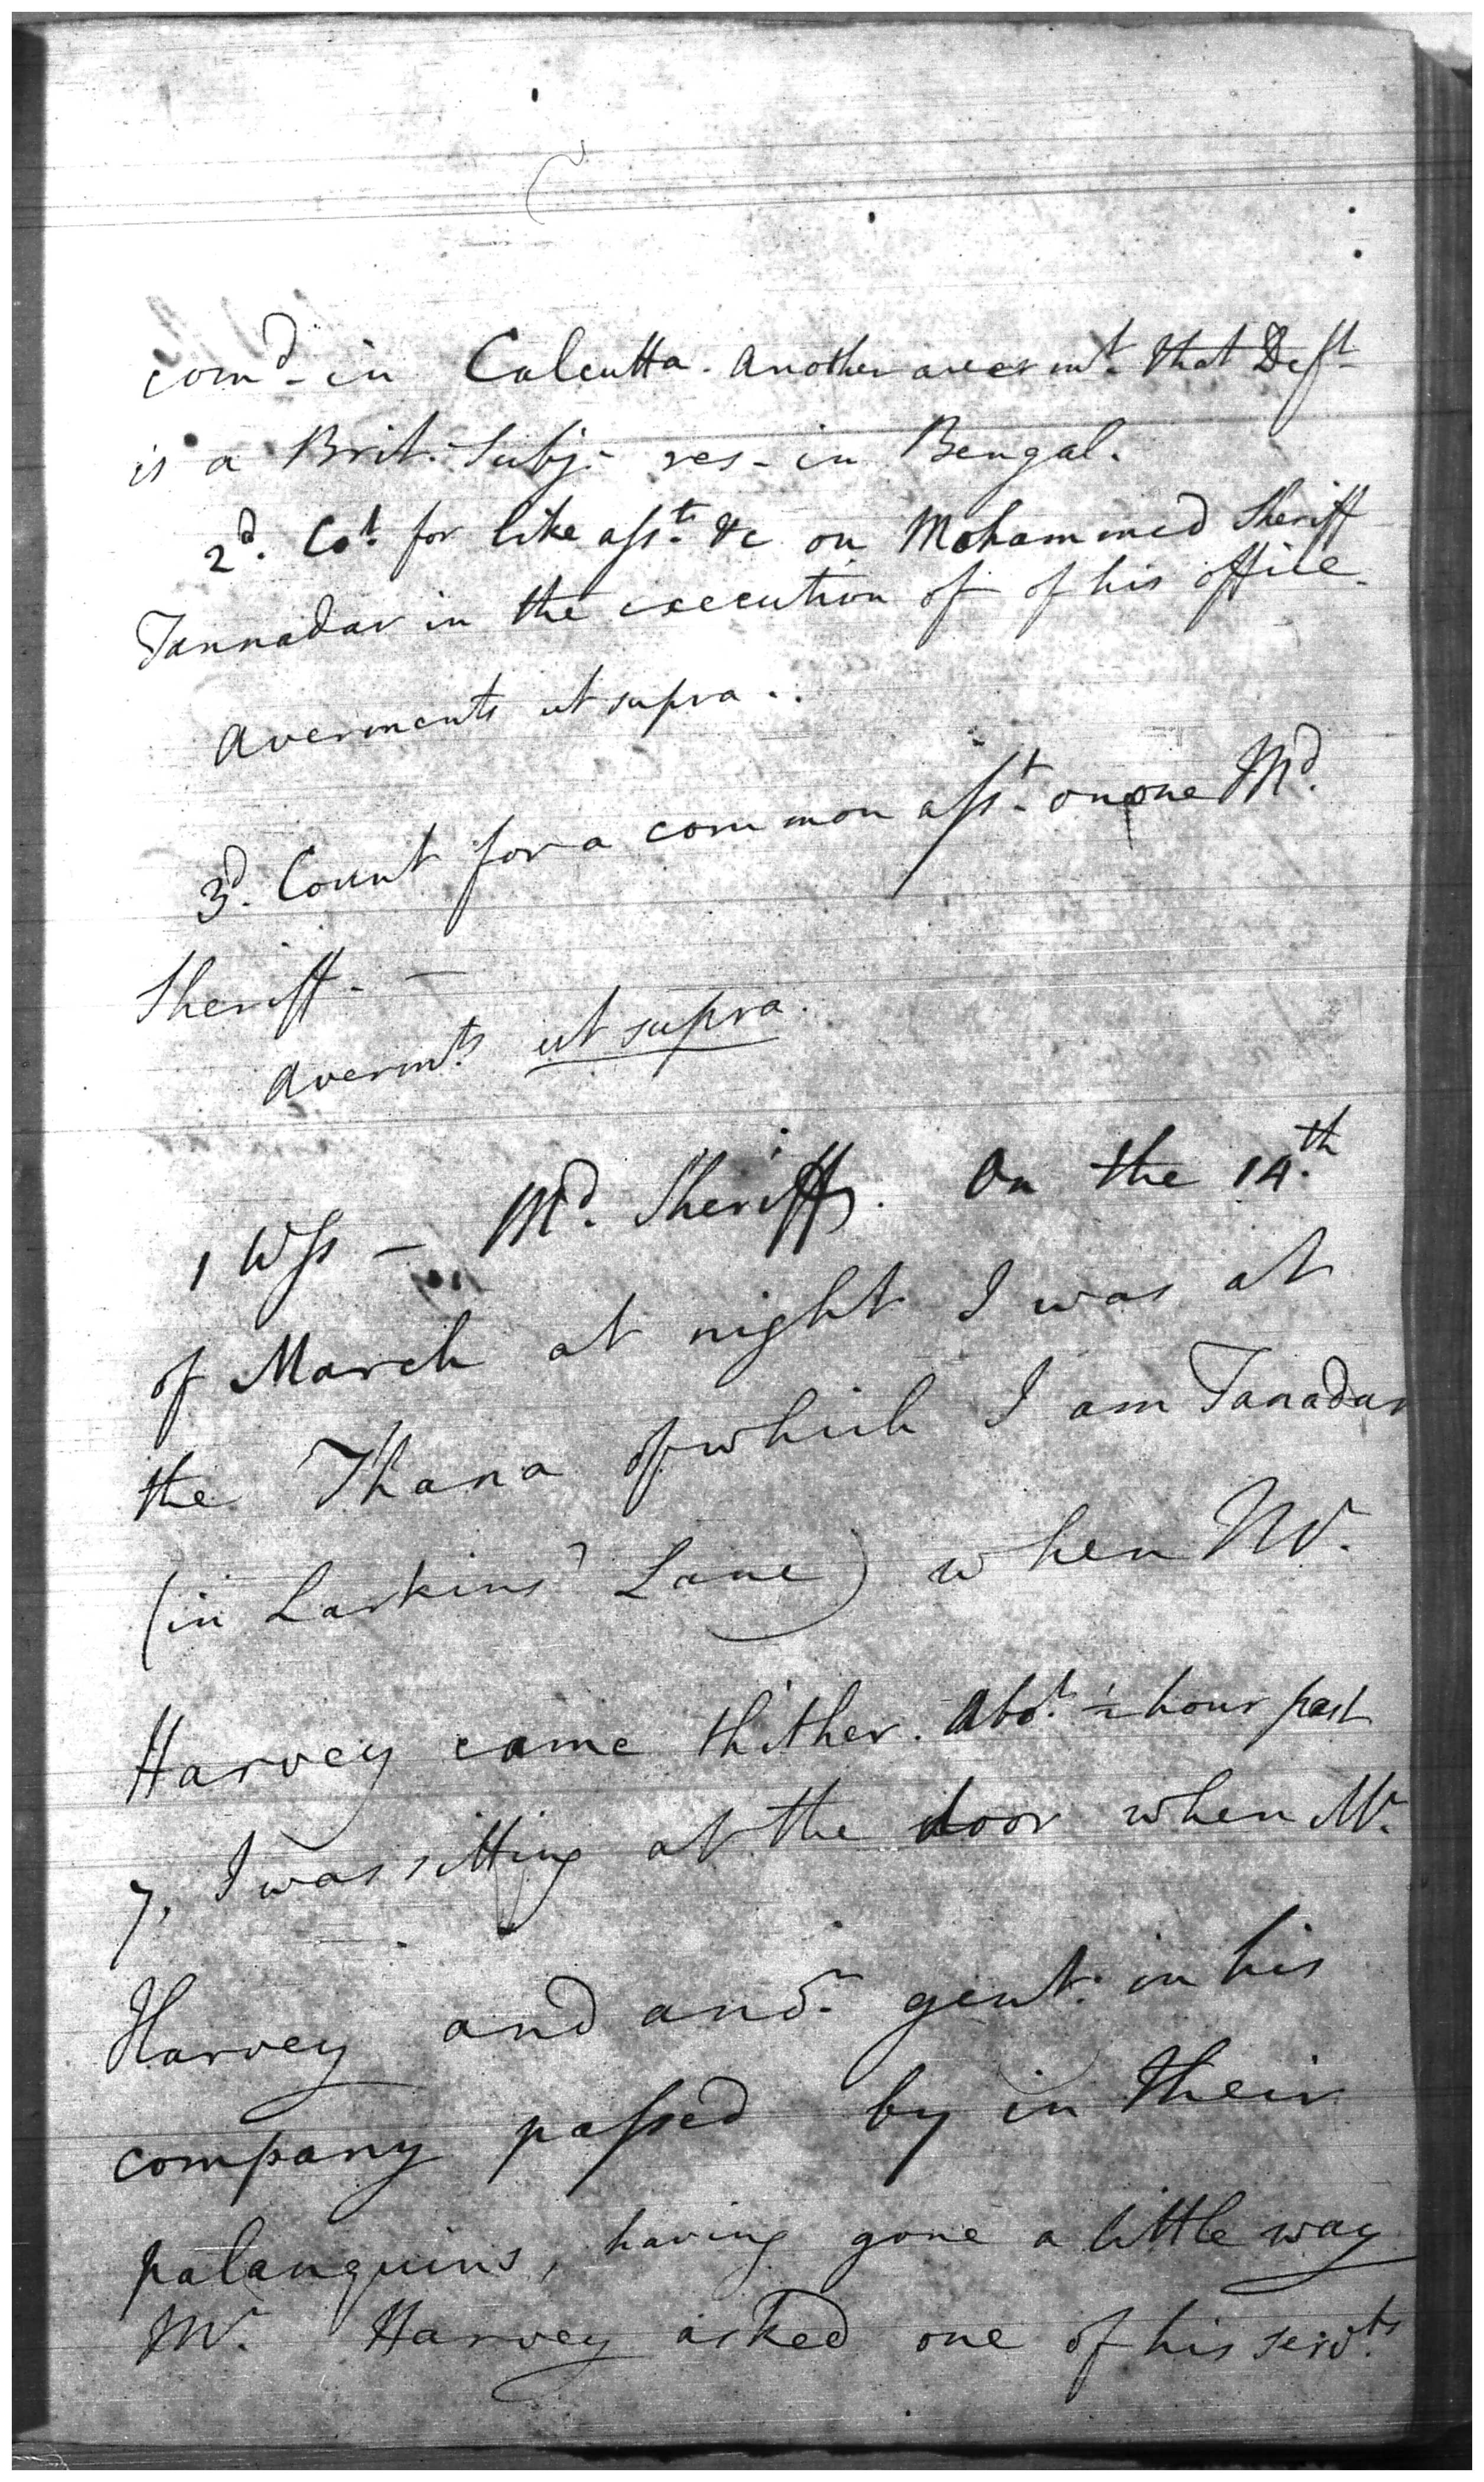 com.d in Calcutta. Another averm.t that Def.t
is a Brit. Subj. res. in Bengal.
2.d Co.t for like ass.t &c on Mohammed Sheriff
Tannadar in the execution of of his office.
Averments ut supra.
3.d Count for a common ass.t on one M.d
Sheriff. —
Averm.ts ut supra.
1 Wss — M.d Sheriff. On the 14.th
of March at night I was at
the Thana of which I am Tanadar
(in Larkins' Lane) when M.r
Harvey came thither. Abo.t ½ hour past
7, I was sitting at the door when M.r
Harvey and ano.r gent. in his
company passed by in their
palanquins, having gone a little way
M.r Harvey asked one of his serv.ts